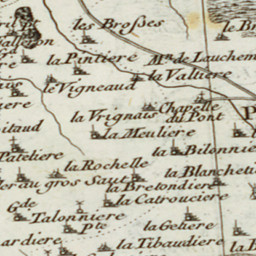 les Brosses
la Pintiere
Mon. de Lauchem
la Valtiere
le Vigneaud
Chapelle
du Pont
la Vrignais
itaud
la Meuliere
la Bilonnie
Pateliere
la Rochelle
la Blancheti
au gros Saut
la Bretondiere
la Catrouciere
Gde
Talonniere
Pte
la Gehere
ardiere
la Tibaudiere